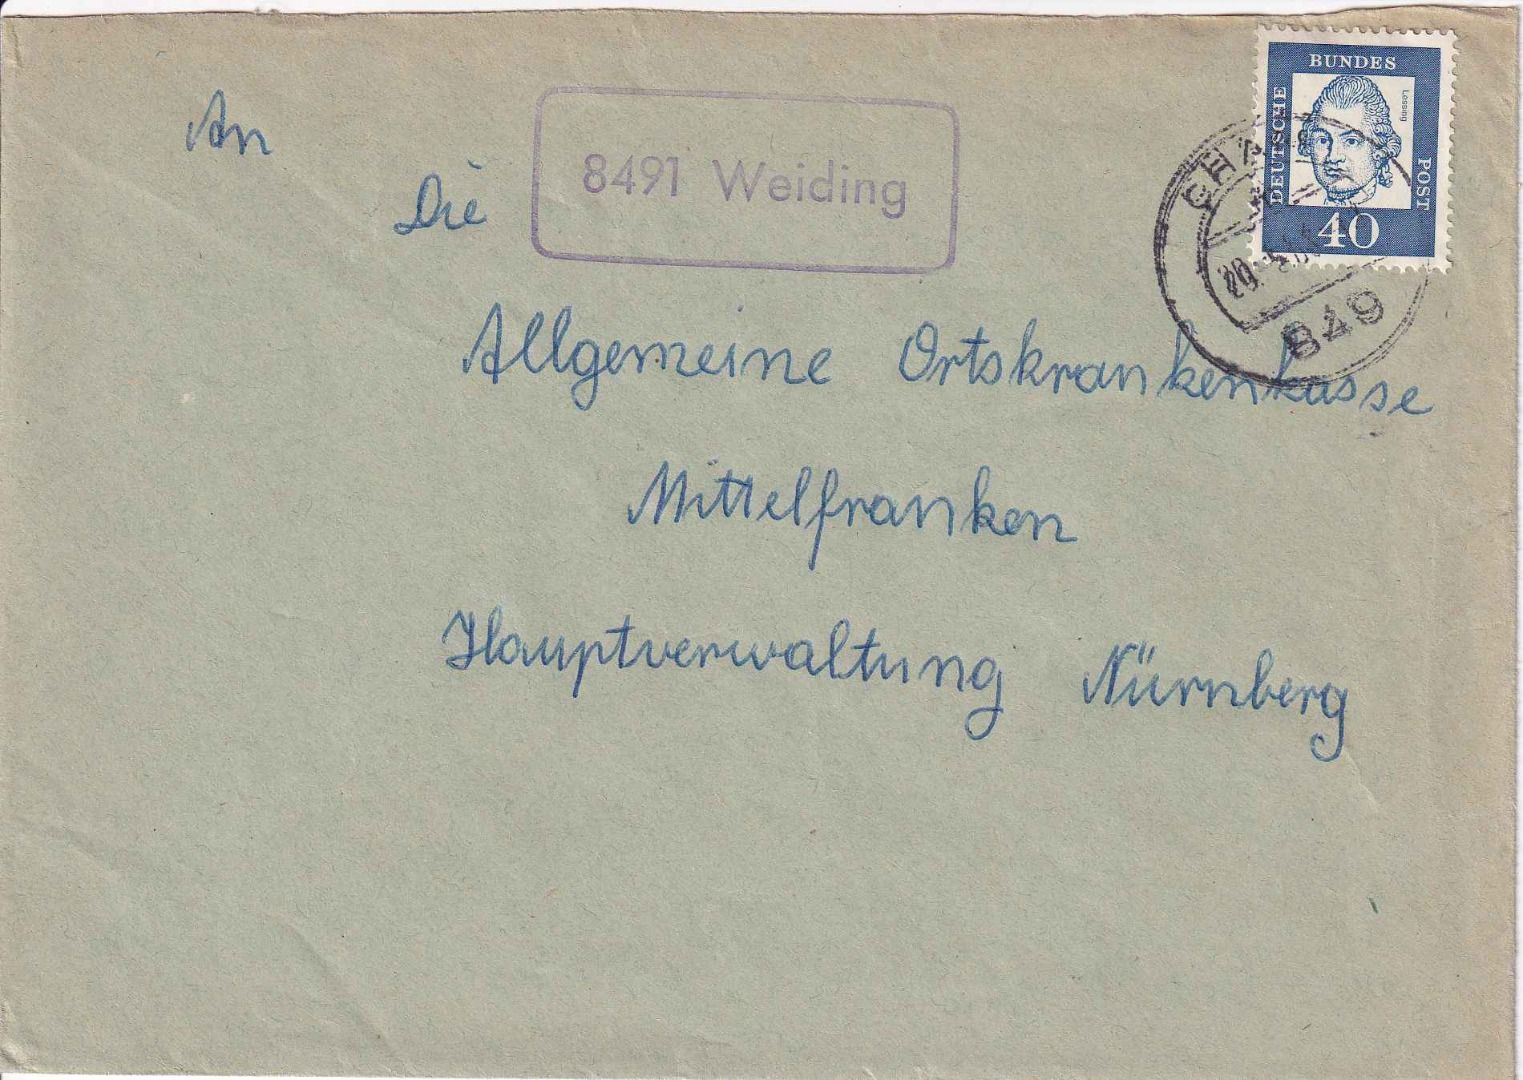 An
Die
8491 Weiding
DEUTSCHE BUNDES POST
Lessing
40
CHAM
849
Allgemeine Ortskrankenkasse
Mittelfranken
Hauptverwaltung Nürnberg